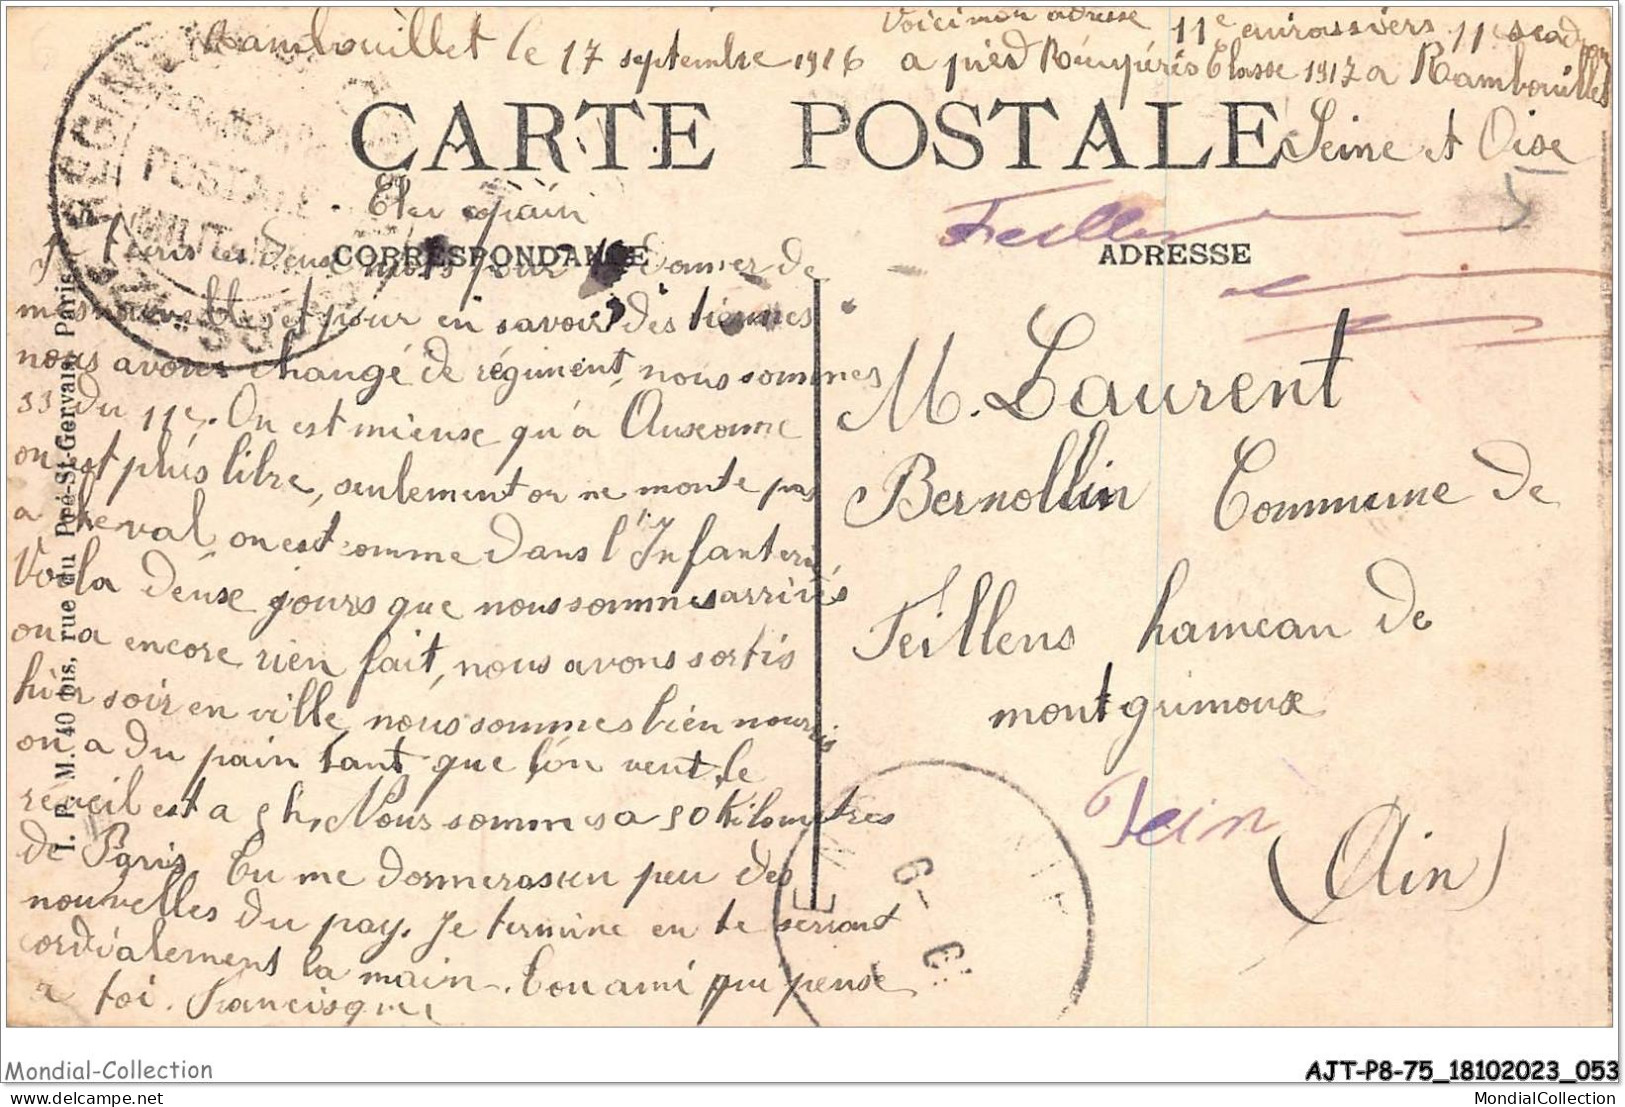 Voici mon adresse 11e cuirassiers 11 escadron
Rambouillet le 17 septembre 1916 a pied Récupérés Classe 1917 a Rambouillet
CARTE POSTALE
Seine et Oise
Cher copain
CORRESPONDANCE
ADRESSE
Feillens
POSTALE
MILITAIRE
Je t'écris ces deux mots pour te donner de
mes nouvelles et pour en savoir des tiennes
nous avons changé de régiment, nous sommes
du 11e. On est mieuse qu'à Auxonne
on est plus libre, seulement on ne monte pas
a cheval on est comme dans l'Infanterie
Voila deuse jours que nous sommes arrivés
on a encore rien fait, nous avons sortis
hier soir en ville, nous sommes bien nourris
on a du pain tant que l'on veut, le
réveil est a 5 h, Nous sommes a 50 kilomètres
de Paris. Tu me donneras un peu des
nouvelles du pay. Je termine en te serrant
cordialement la main. Ton ami qui pense
a toi. Francisque
M. Laurent
Bernollin Commune de
Feillens hameau de
montgrimoux
(Ain)
I. P. M. 40 bis, rue du Pré-St-Gervais, Paris
Mondial-Collection
AJT-P8-75_18102023_053
MondialCollection